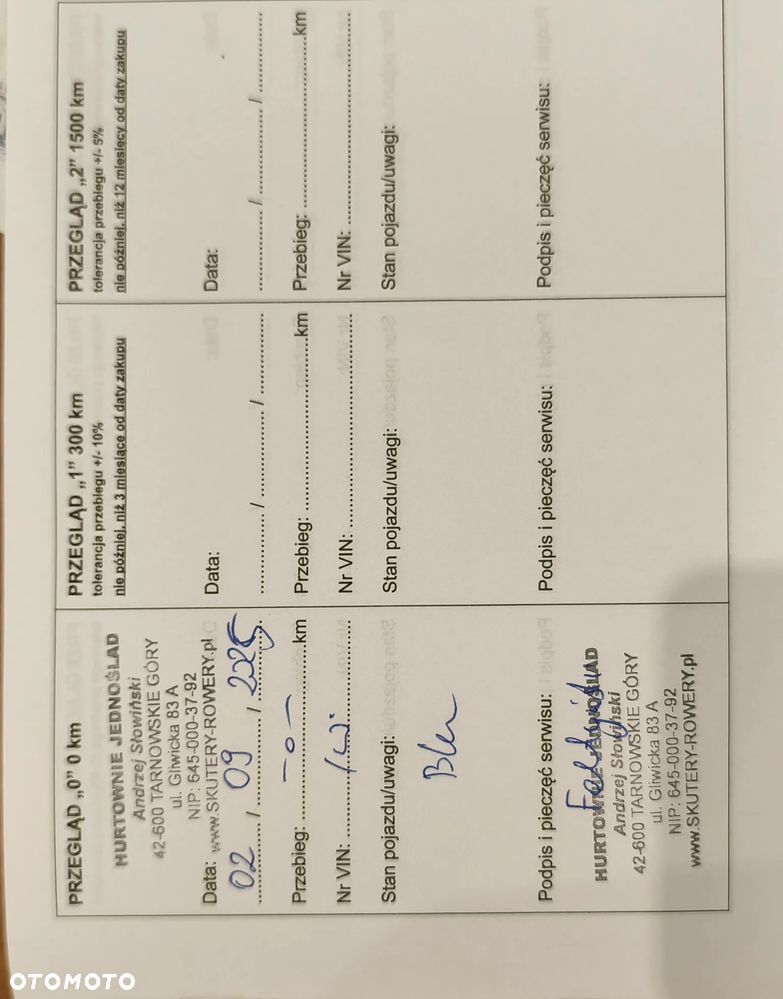 PRZEGLĄD „0” 0 km
HURTOWNIE JEDNOŚLAD
Andrzej Słowiński
42-600 TARNOWSKIE GÓRY
ul. Gliwicka 83 A
NIP: 645-000-37-92
www.SKUTERY-ROWERY.pl
Data:
02 / 09 / 2025
Przebieg: — 0 — km
Nr VIN:
Stan pojazdu/uwagi:
Podpis i pieczęć serwisu:
HURTOWNIE JEDNOŚLAD
Andrzej Słowiński
42-600 TARNOWSKIE GÓRY
ul. Gliwicka 83 A
NIP: 645-000-37-92
www.SKUTERY-ROWERY.pl
PRZEGLĄD „1” 300 km
tolerancja przebiegu +/- 10%
nie później, niż 3 miesiące od daty zakupu
Data:
................. / ................. / .................
Przebieg: ........................................km
Nr VIN: ................................................
Stan pojazdu/uwagi:
Podpis i pieczęć serwisu:
PRZEGLĄD „2” 1500 km
tolerancja przebiegu +/- 5%
nie później, niż 12 miesięcy od daty zakupu
Data:
................. / ................. / .................
Przebieg: ........................................km
Nr VIN: ................................................
Stan pojazdu/uwagi:
Podpis i pieczęć serwisu:
OTOMOTO